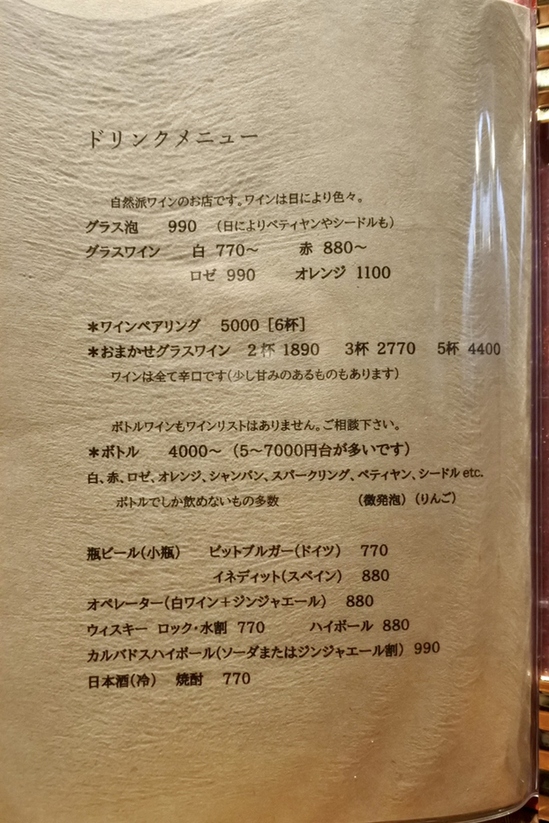 ドリンクメニュー
自然派ワインのお店です。ワインは日により色々。
グラス泡 990 （日によりペティヤンやシードルも）
グラスワイン 白 770〜 赤 880〜
ロゼ 990 オレンジ 1100
＊ワインペアリング 5000 [6杯]
＊おまかせグラスワイン 2杯 1890 3杯 2770 5杯 4400
ワインは全て辛口です（少し甘みのあるものもあります）
ボトルワインもワインリストはありません。ご相談下さい。
＊ボトル 4000〜（5〜7000円台が多いです）
白、赤、ロゼ、オレンジ、シャンパン、スパークリング、ペティヤン、シードル etc.
ボトルでしか飲めないもの多数 （微発泡）（りんご）
瓶ビール（小瓶） ビットブルガー（ドイツ） 770
イネディット（スペイン） 880
オペレーター（白ワイン＋ジンジャエール） 880
ウィスキー ロック・水割 770 ハイボール 880
カルバドスハイボール（ソーダまたはジンジャエール割） 990
日本酒（冷） 焼酎 770